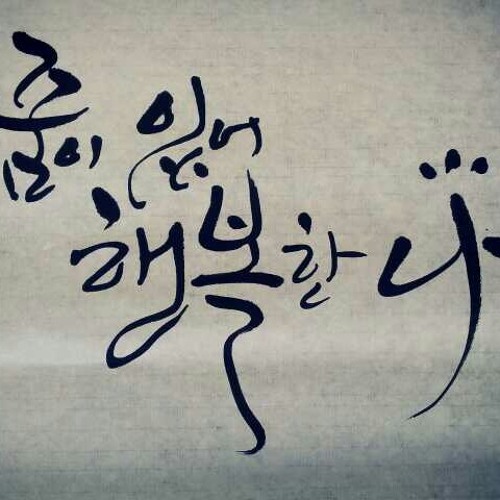 춤이 있어
행복한 나